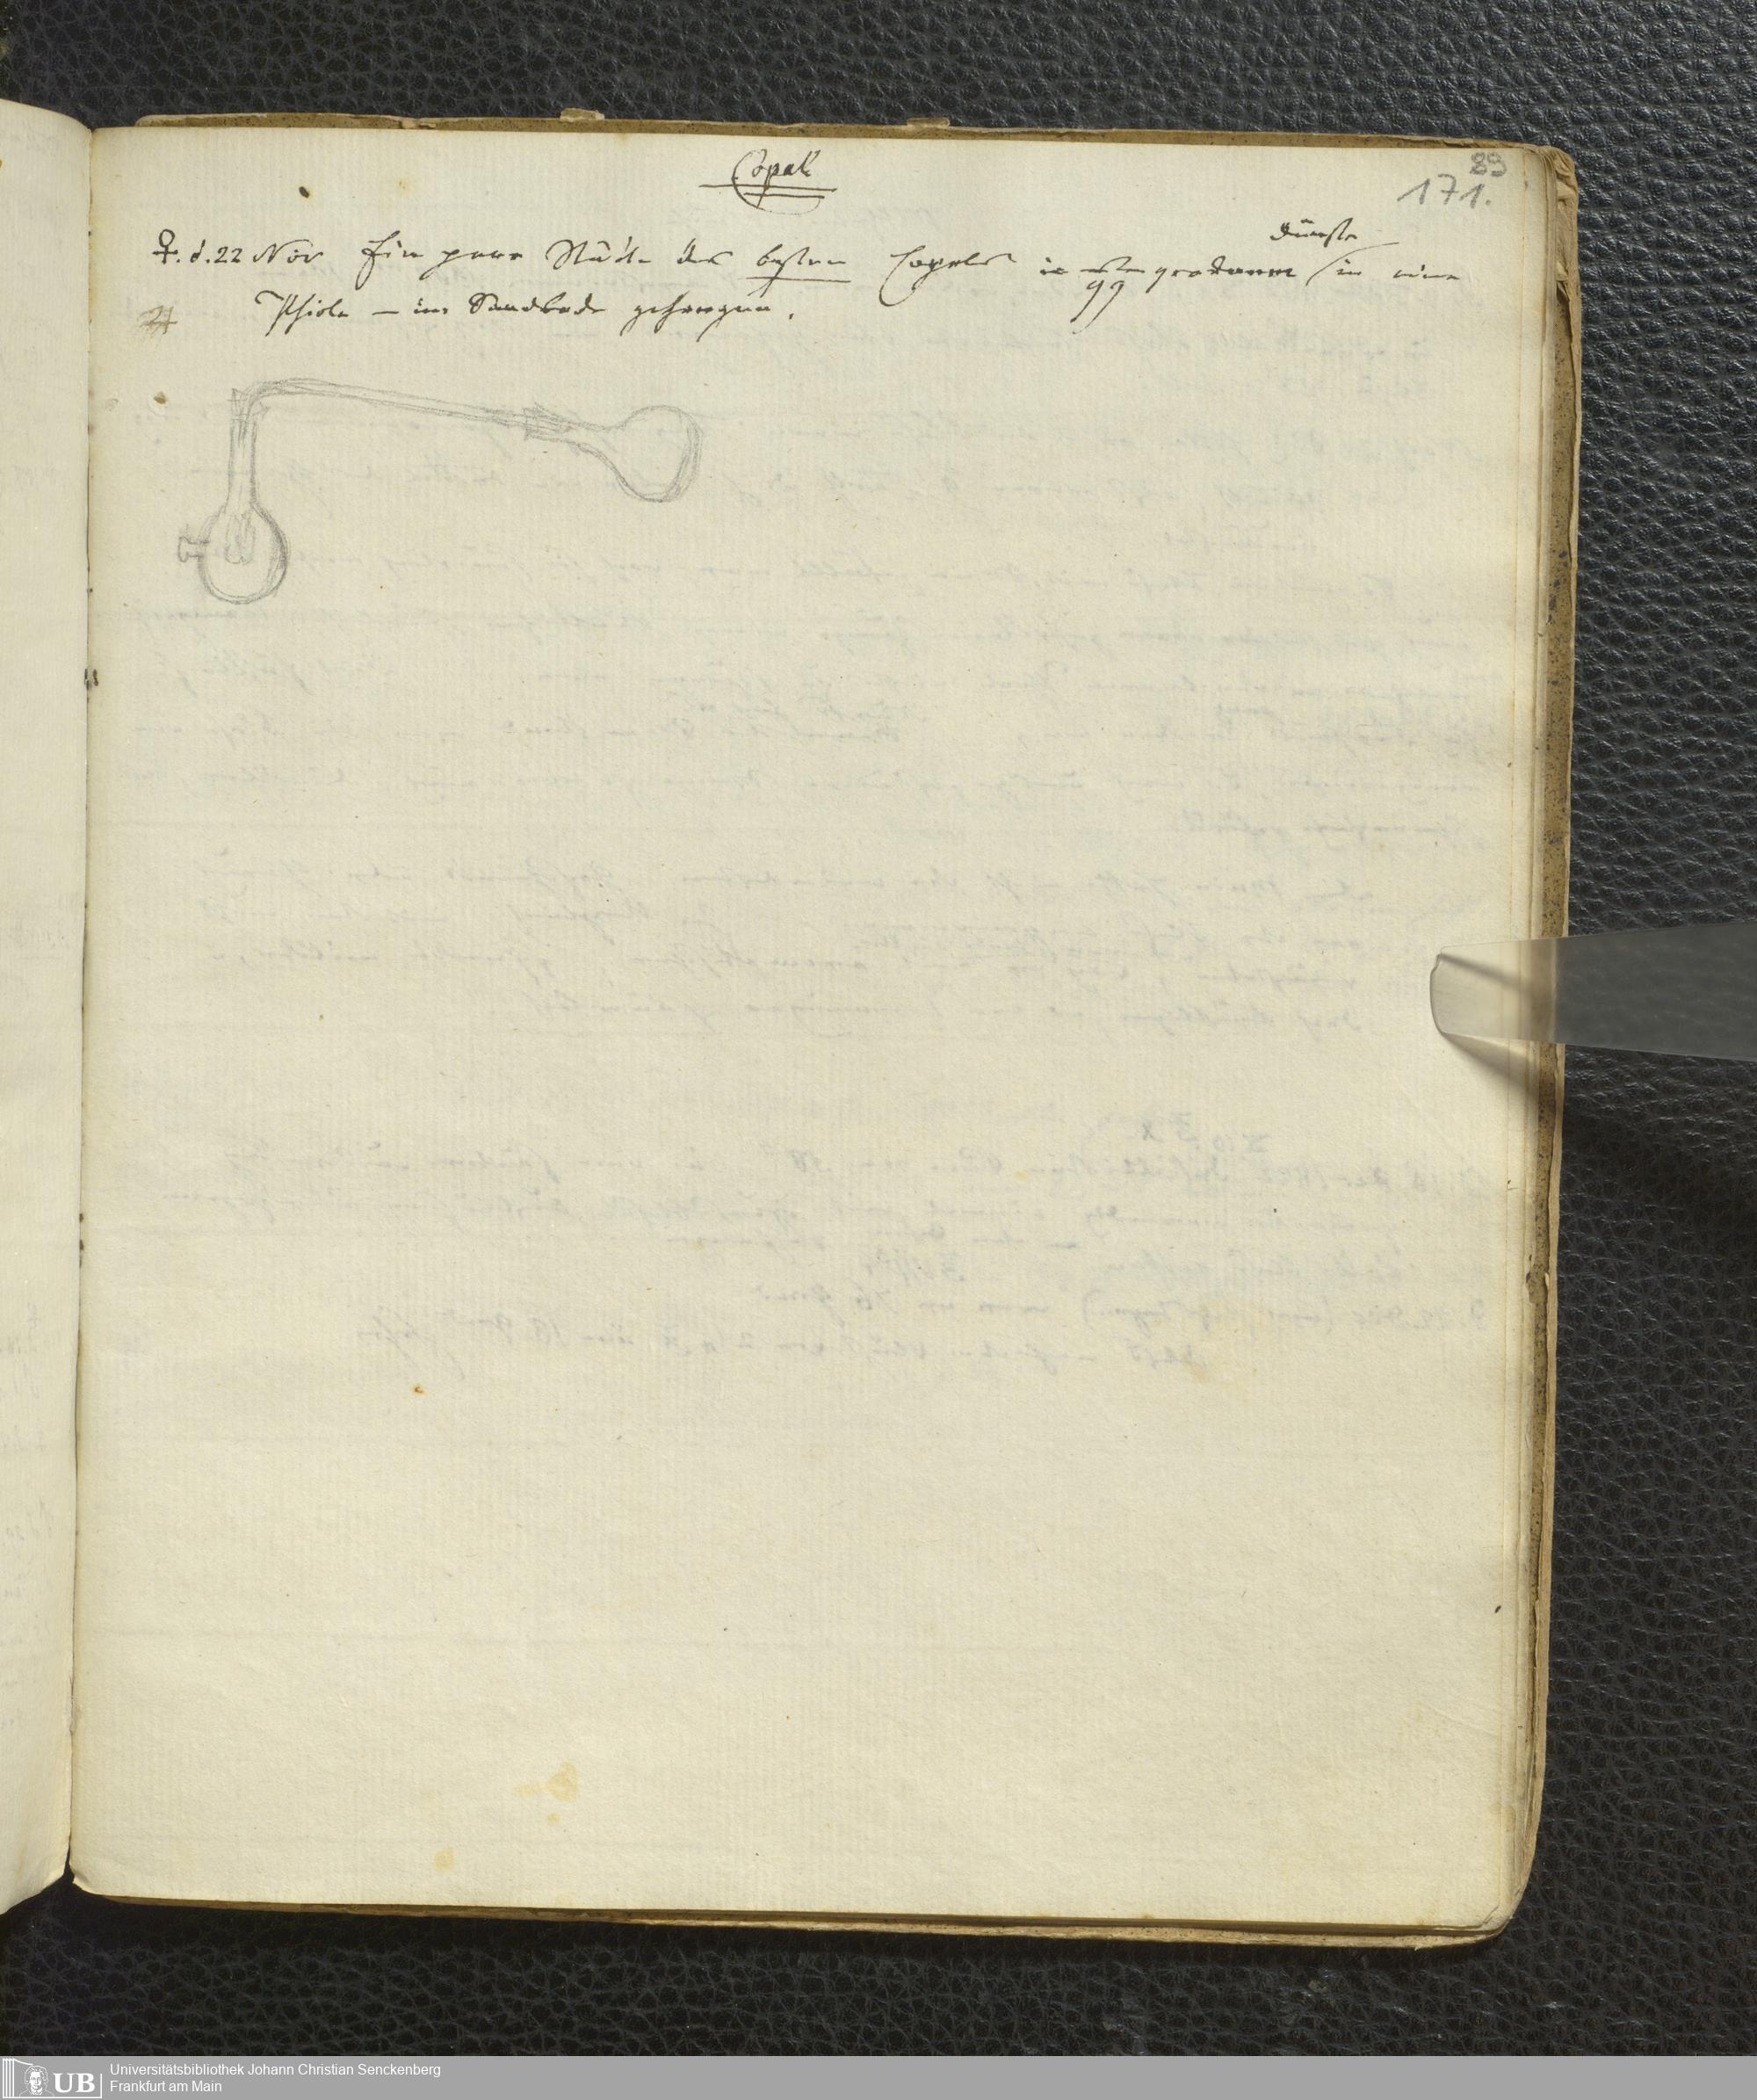 89
171.
Copal
dünste
♀. d. 22 Nov Ein paar Stücke des besten Copals in in eine
Phiole – ins Sandbade gehangen.
24
Universitätsbibliothek Johann Christian Senckenberg
Frankfurt am Main
UB